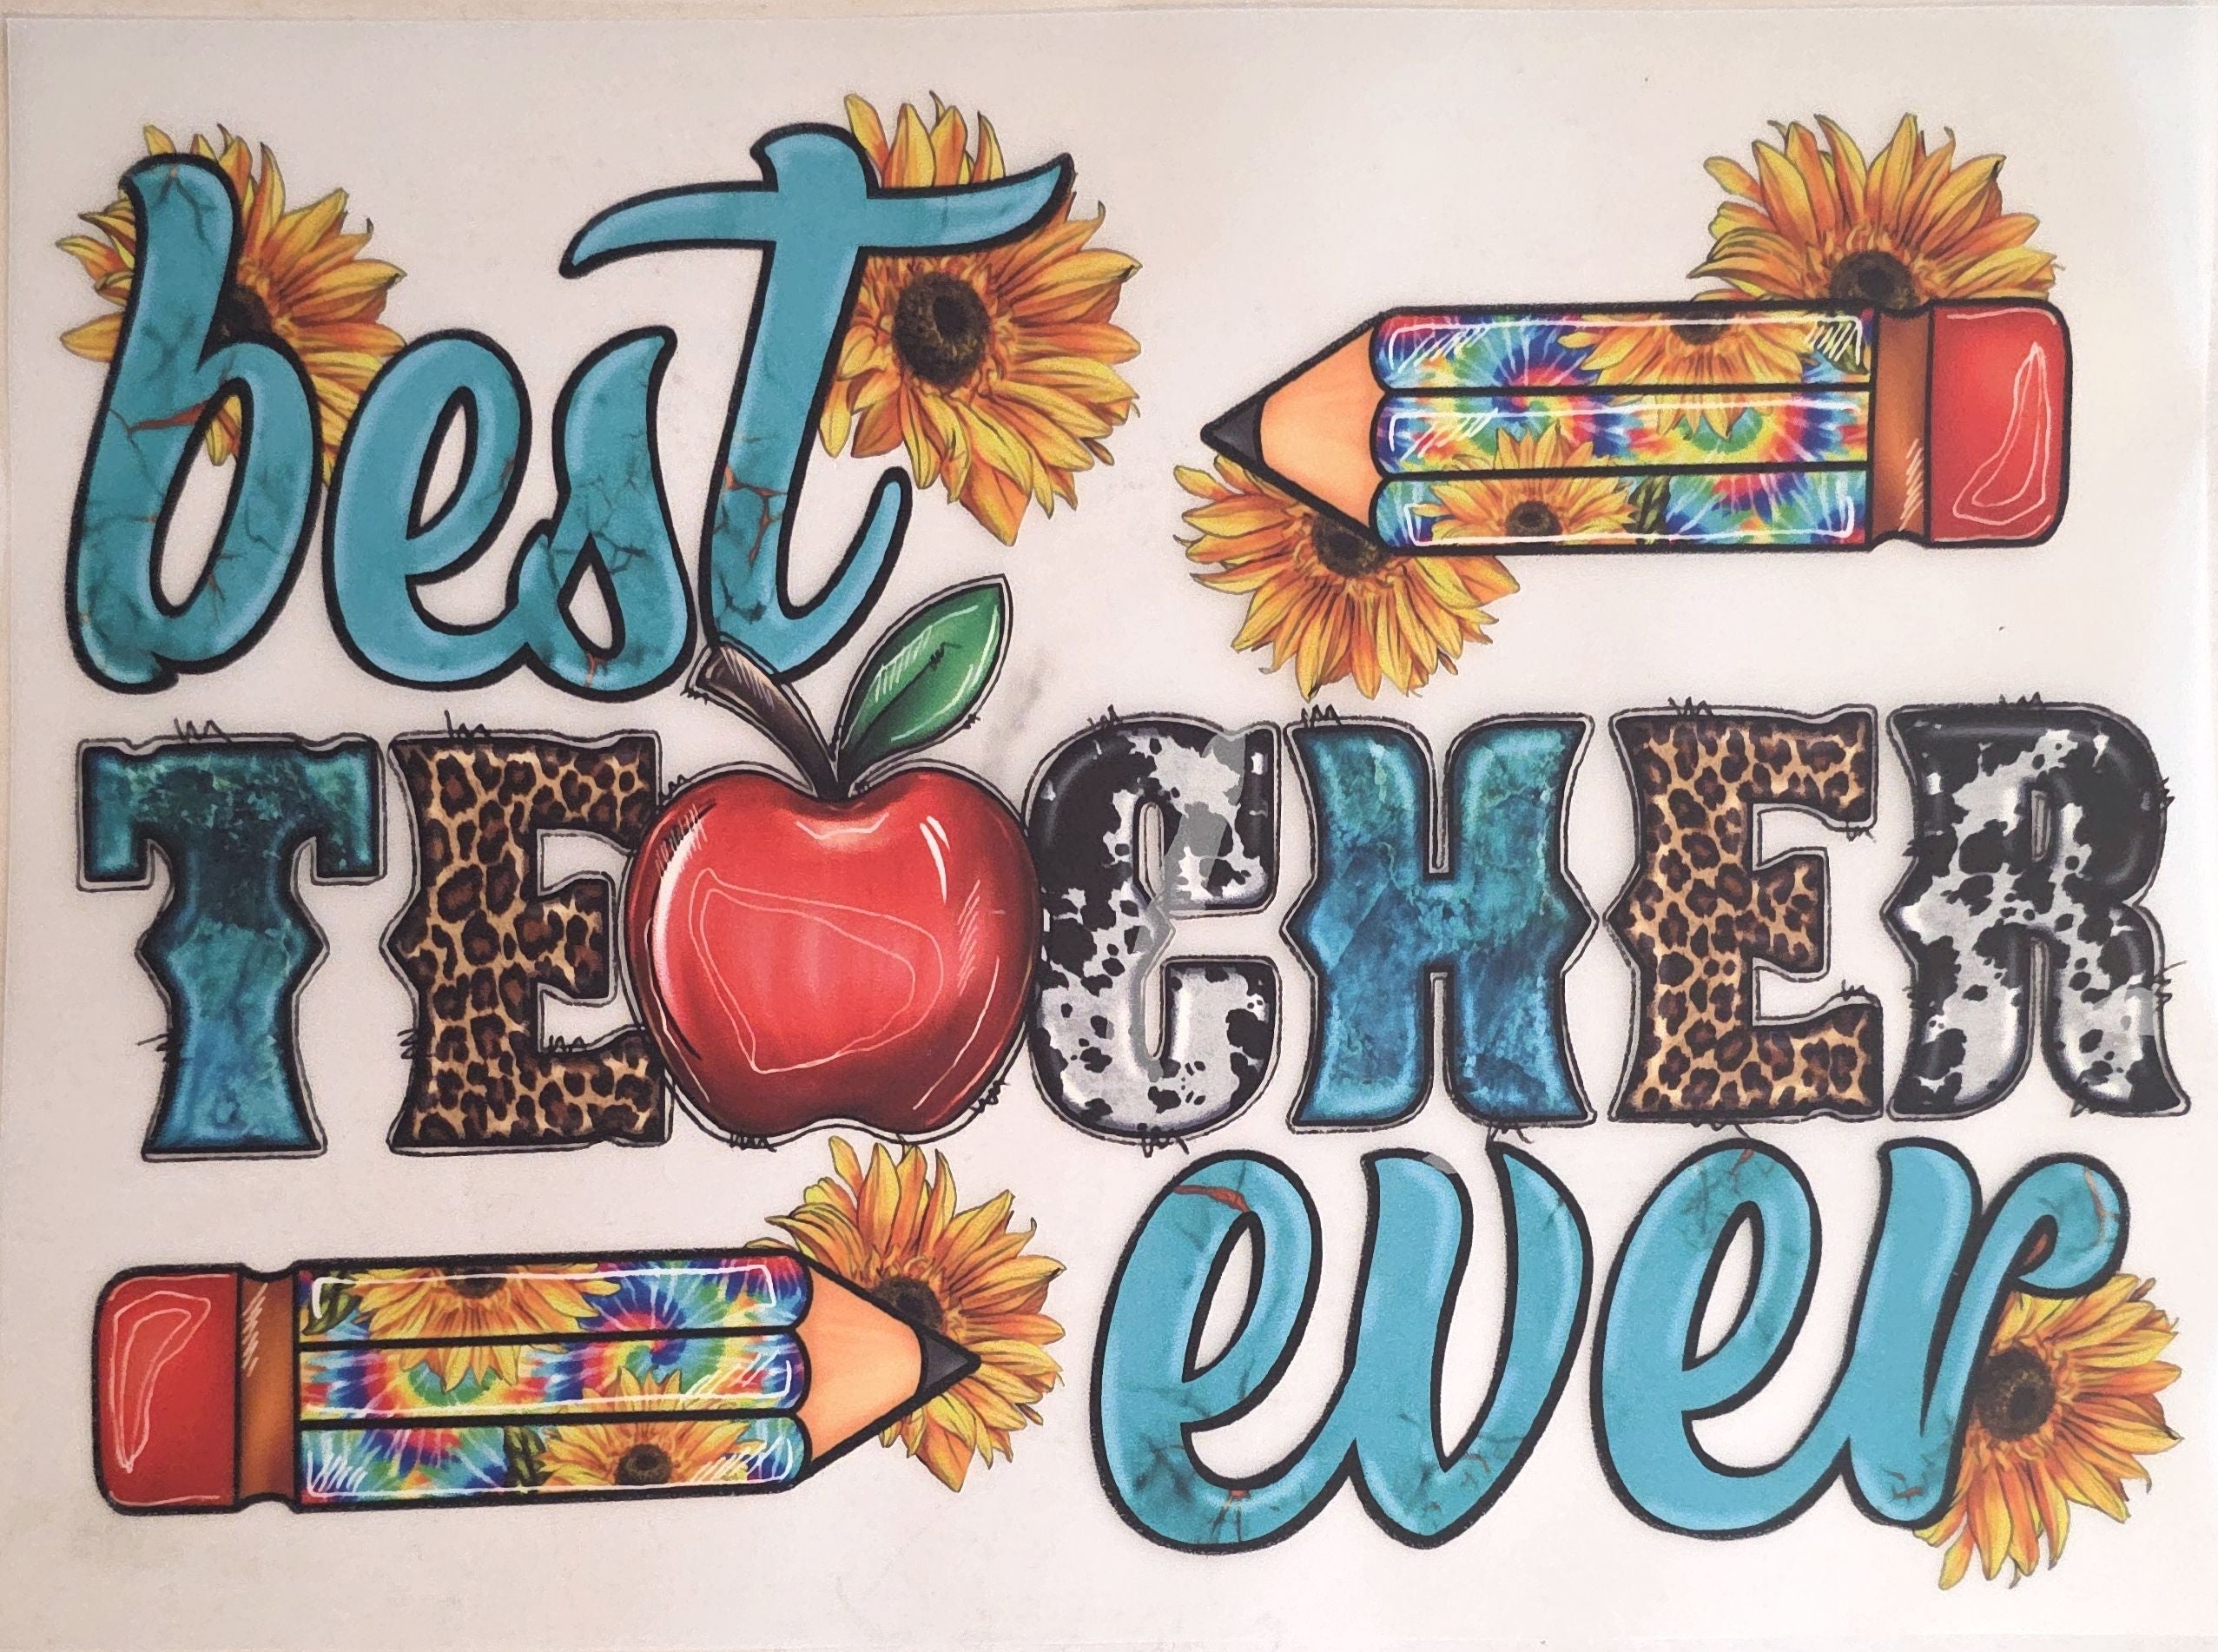 best
TECHER
ever